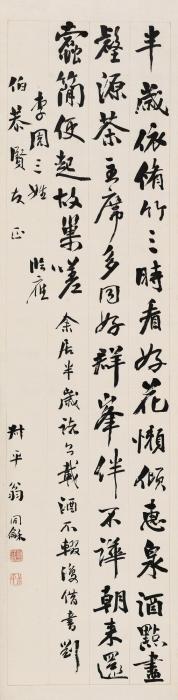 半歲依脩竹三時看好花懶傾惠泉酒點盡
壑源茶主席多同好群峯伴不譁朝來還
蠹簡便起故巢嗟 余居半歲諸公載酒不輟復借書劉
李周三姓
伯恭賢友正 臨應
叔平翁同龢